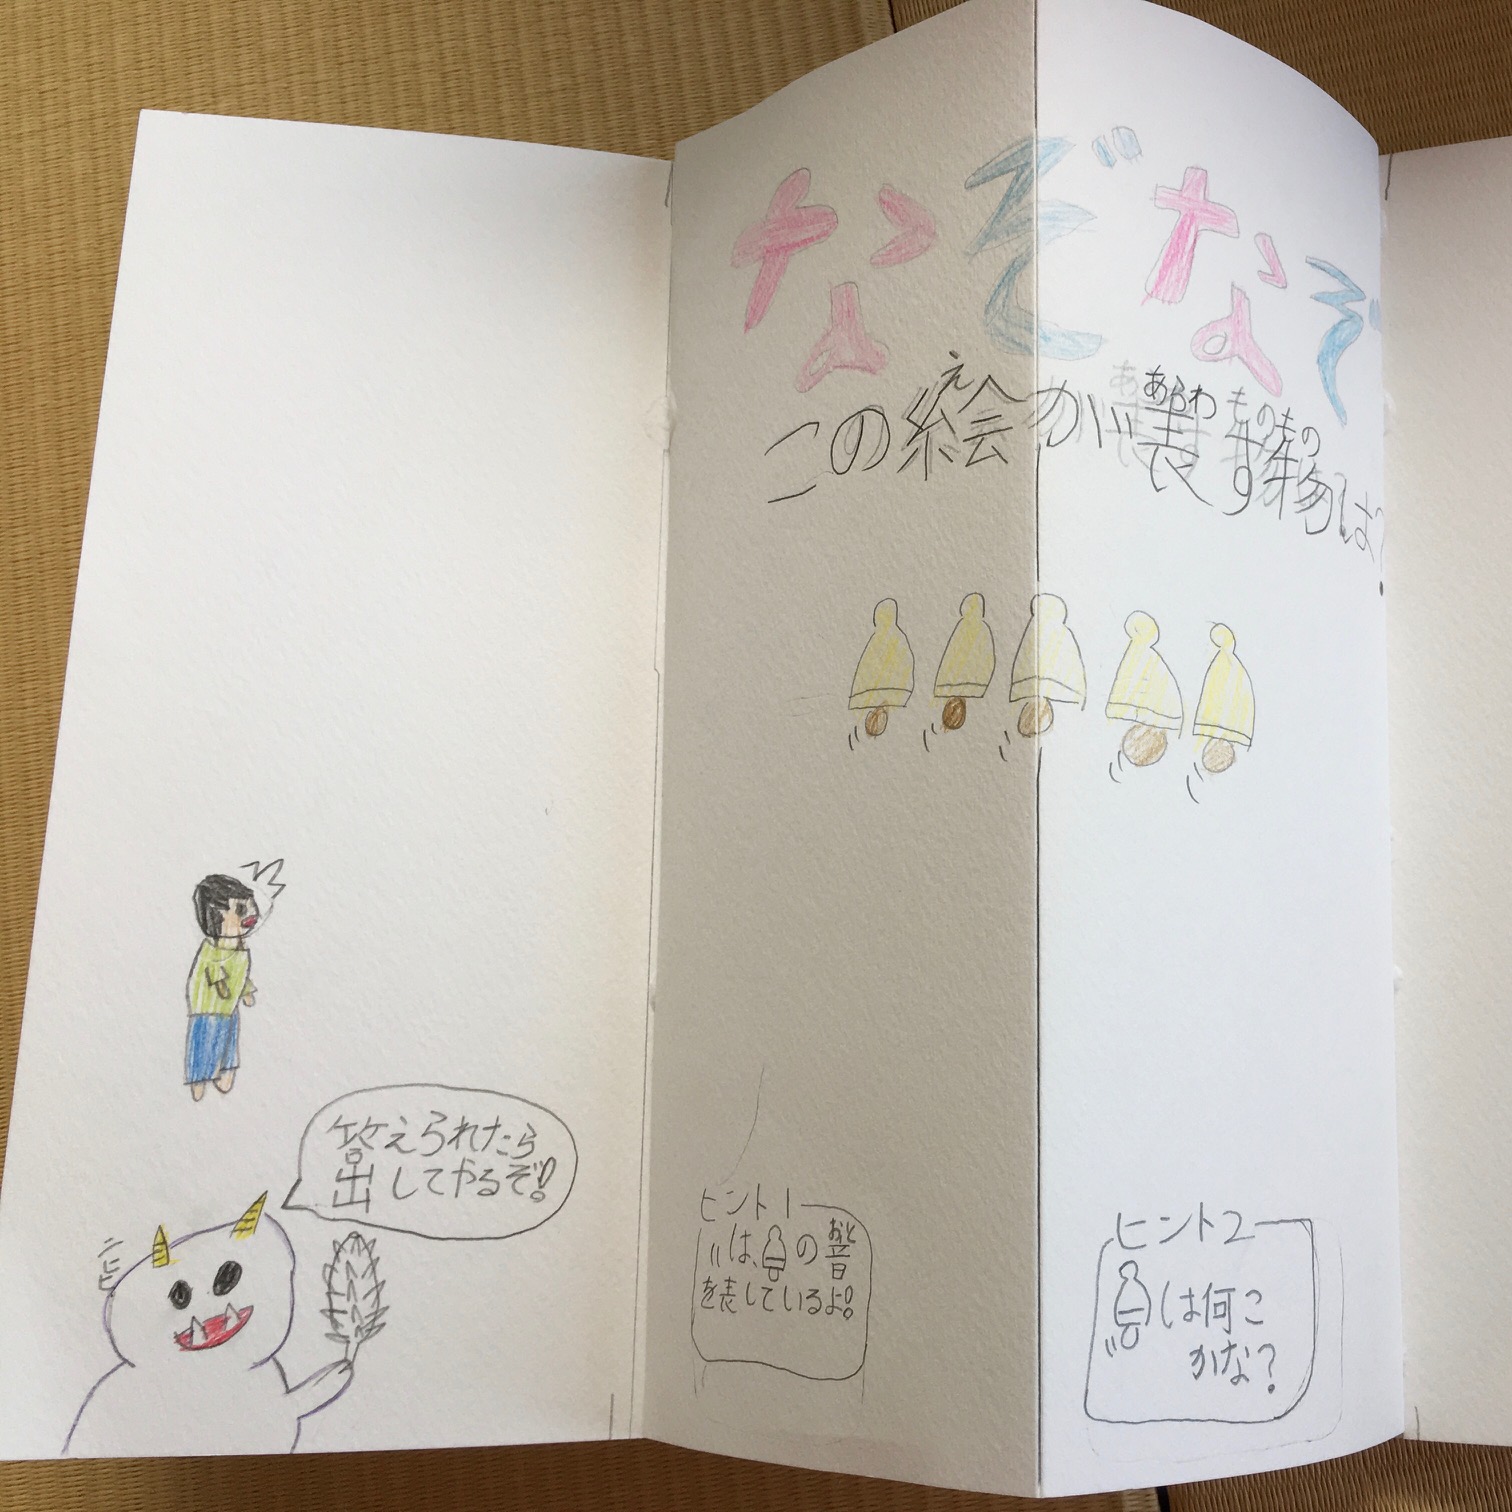 なぞなぞ
この絵が表す物は?
え
あらわ
もの
もの
答えられたら
出してやるぞ!
ヒヒヒ
ヒント1
〃は、の音
おと
を表しているよ!
ヒント2
は何こ
かな?